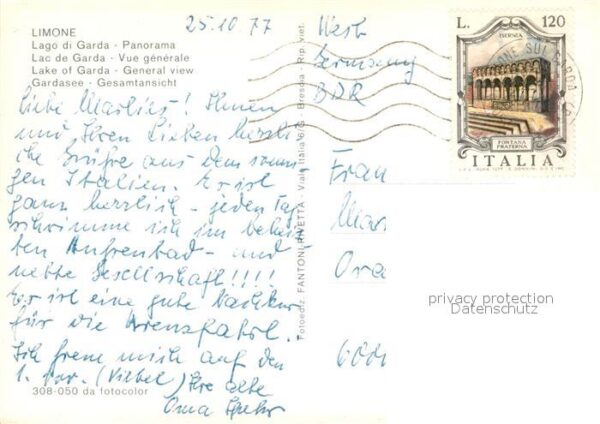 LIMONE
Lago di Garda - Panorama
Lac de Garda - Vue générale
Lake of Garda - General view
Gardasee - Gesamtansicht
25.10.77
Liebe Marlies! Ihnen
und Ihren Lieben herzli-
che Grüße aus dem sonni-
gen Italien. Es ist
ganz herrlich - jeden Tag
schwimme ich im beheiz-
ten Außenbad - und
nette Gesellschaft!!!!
Es ist eine gute Nachkur
für die Kreuzfahrt.
Ich freue mich auf den
1. Nov. (Vilbel) Ihre alte
Oma
308-050 da fotocolor
Fotoediz. FANTONI-RIVETTA - Viale Italia 6/G - Brescia - Rip. viet.
West
Germany
BDR
L. 120
ISERNIA
FONTANA
FRATERNA
ITALIA
Frau
Mar
privacy protection
Datenschutz